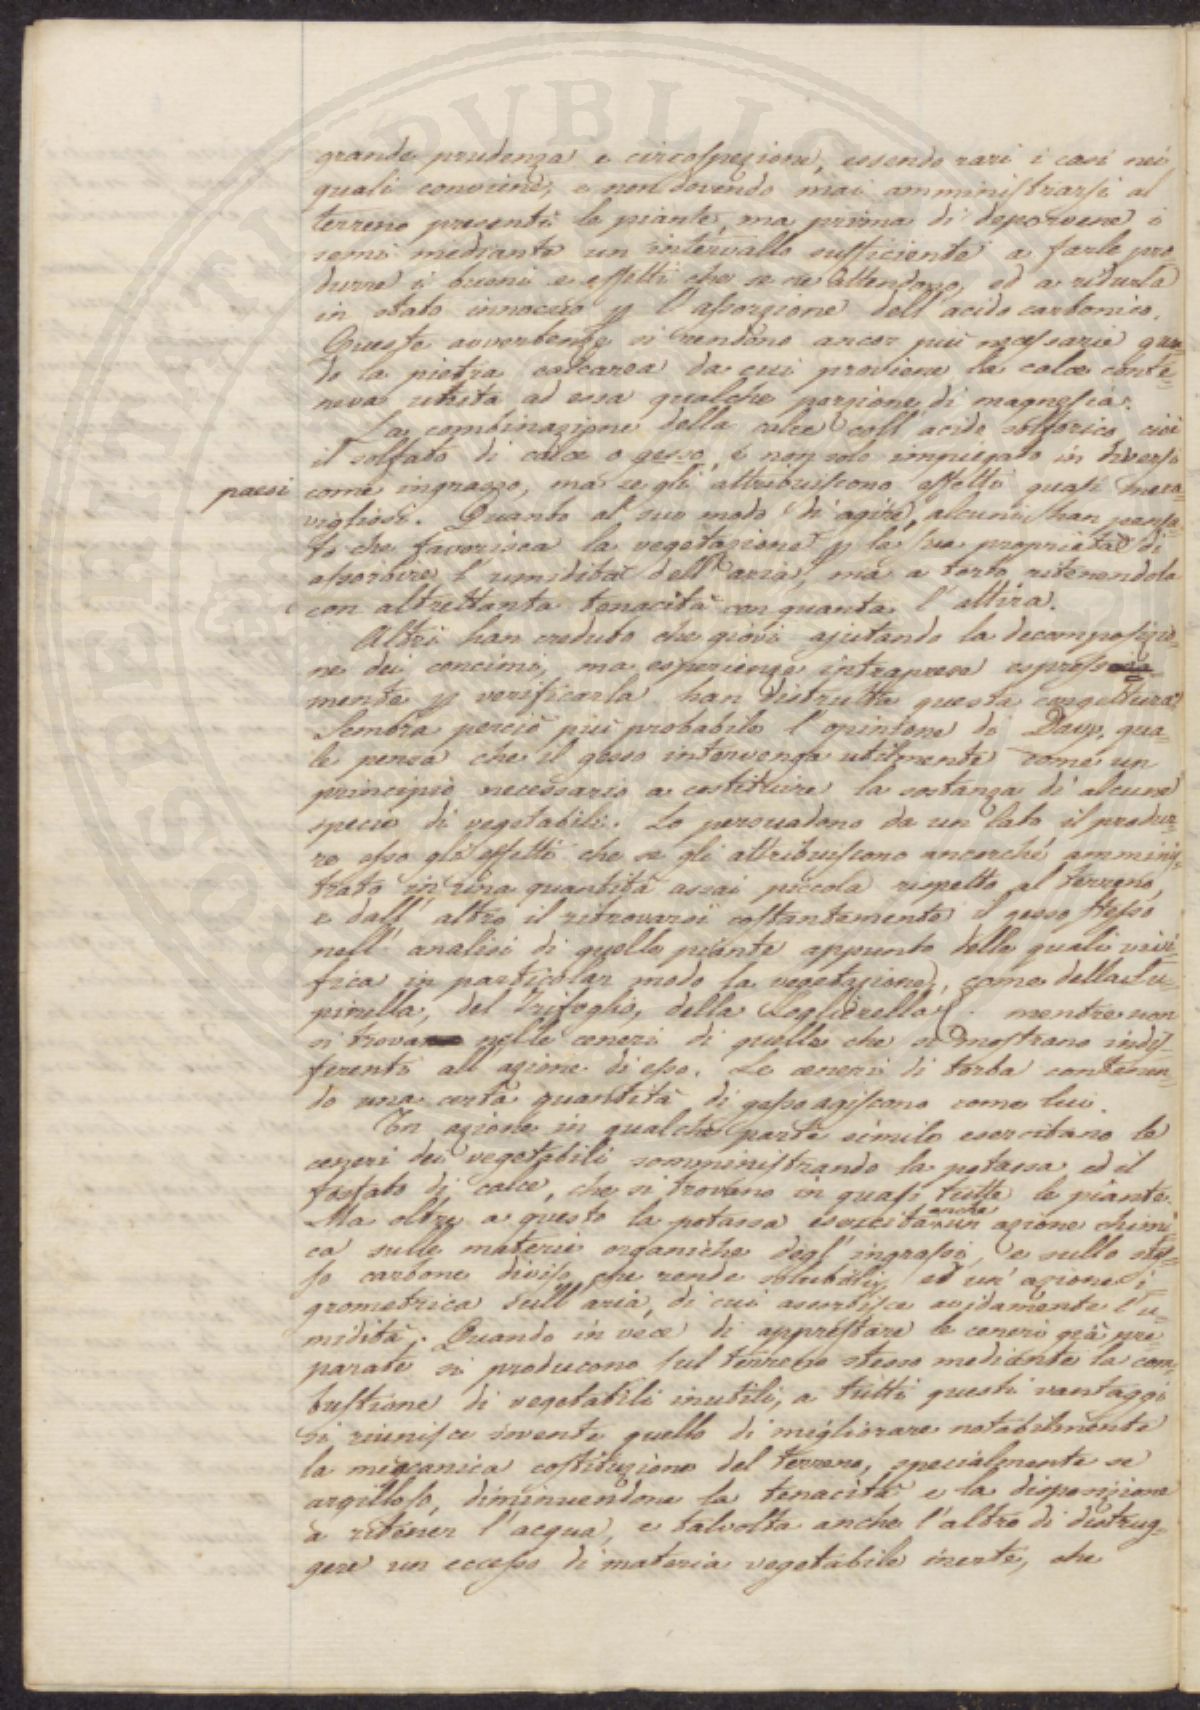 grande prudenza e circospezione, essendo rari i casi nei
quali conviene, e non dovendo mai amministrarsi al
terreno presenti le piante, ma prima di deporvene i
semi mediante un intervallo sufficiente a farle pro-
durre i buoni e effetti che se ne attendono, ed a ridurla
in stato innocuo p l'assorzione dell'acido carbonico.
Queste avvertenze si rendono ancor più necessarie quan-
do la pietra calcarea da cui proviene la calce conte-
neva unita ad essa qualche porzione di magnesia.
La combinazione della calce coll'acido solforico cioè
il solfato di calce o gesso, è non solo impiegato in diversi
paesi come ingrasso, ma se gli attribuiscono effetti quasi mera-
vigliosi. Quanto al suo modo di agire, alcuni han pensa-
to che favorisca la vegetazione p la sua proprietà di
assorbire l'umidità dell'aria, ma a torto ritenendola
con altrettanta tenacità con quanta l'attira.
Altri han creduto che giovi ajutando la decomposizio-
ne dei concimi, ma esperienze intraprese espressa-
mente p verificarla han distrutta questa congettura
Sembra perciò più probabile l'opinione di Davy, qua-
le pensa che il gesso intervenga utilmente come un
principio necessario a costituire la sostanza di alcune
specie di vegetabili. Lo persuadono da un lato il produr-
re esso gli effetti che se gli attribuiscono ancorché amminis-
trato in una quantità assai piccola rispetto al terreno,
e dall'altro il ritrovarsi costantemente il gesso stesso
nell'analisi di quelle piante appunto delle quali vivi-
fica in particolar modo la vegetazione, come della Lu-
pinella, del Trifoglio, della Loglierella &. mentre non
si trova nelle ceneri di quelle che si mostrano indif-
ferenti all'azione di esso. Le ceneri di torba contenen-
do una certa quantità di gesso agiscono come lui.
Un azione in qualche parte simile esercitano le
ceneri dei vegetabili somministrando la potassa ed il
fosfato di calce, che si trovano in quasi tutte le piante.
Ma oltre a questo la potassa esercita anche un azione chimi-
ca sulle materie organiche degl'ingrassi, e sullo stes-
so carbone diviso che rende solubili, ed un'azione i-
grometrica sull'aria, di cui assorbisce avidamente l'u-
midità. Quando in vece di apprestare le ceneri già pre-
parate si producono sul terreno stesso mediante la com-
bustione di vegetabili inutili, a tutti questi vantaggi
si riunisce sovente quello di migliorare notabilmente
la meccanica costituzione del terreno, specialmente se
argilloso, diminuendone la tenacità e la disposizione
a ritener l'acqua, e talvolta anche l'altro di distrug-
gere un eccesso di materia vegetabile inerte, che